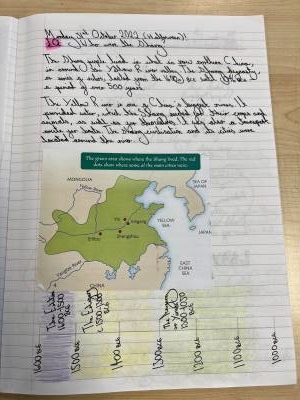 Monday 31st October 2022 (Halloween)!
LQ Who were the Shang
The Shang people lived in what is now northern China,
in around the Yellow River valley. The Shang dynasty,
a series of rulers, lasted from the BCE until BCE
a period of over 500 years
The Yellow River is one of China's longest rivers. It
provided water, which the Shang needed for their crops and
animals, as well as for themselves. It was also a transport
route for boats. The Shang civilisation and its cities were
located around the river.
The green area shows where the Shang lived. The red
dots show where some of the main cities were.
MONGOLIA
SEA OF
JAPAN
Yellow River
Yin
Anyang
YELLOW
SEA
Erlitou
Zhengzhou
JAPAN
EAST
CHINA
SEA
Yangtze River
CHINA
The Erlitou
1600-1500
BCE
The Erligang
c 1500-1300
BCE
1600 BCE
1500 BCE
1400 BCE
1300 BCE
1200 BCE
1100 BCE
1000 BCE